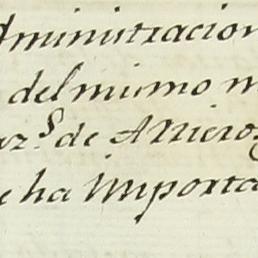 Administracion
del mismo m
az.s de Arrieros
e ha importa